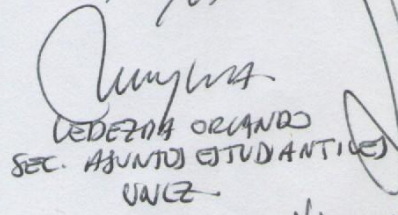 LEDEZMA ORLANDO
SEC. ASUNTOS ESTUDIANTILES
UNLZ